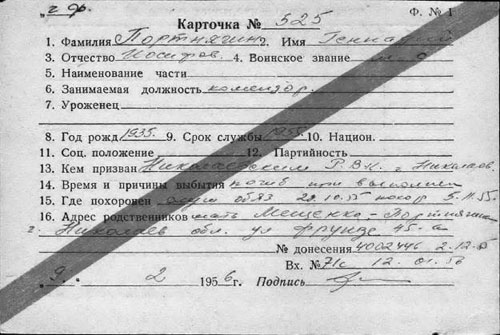 "г ф."
Ф. № 1
Карточка № 525
1. Фамилия Портнягин 2. Имя Геннадий
3. Отчество Иосифов. 4. Воинское звание
5. Наименование части
6. Занимаемая должность комендор
7. Уроженец
8. Год рожд 1935. 9. Срок службы 1955 10. Национ.
11. Соц. положение 12. Партийность
13. Кем призван Николаевским Р.В.К. г Николаев
14. Время и причины выбытия погиб при выполнен
15. Где похоронен обяз 29.10.55 5.11.55.
16. Адрес родственников мать Мещенко-Портнягина
г. Николаев обл. ул Фрунзе 45-а
№ донесения 4002446 2.12.
9. 2 1956 г. Вх. № 71с 12.01.56
Подпись